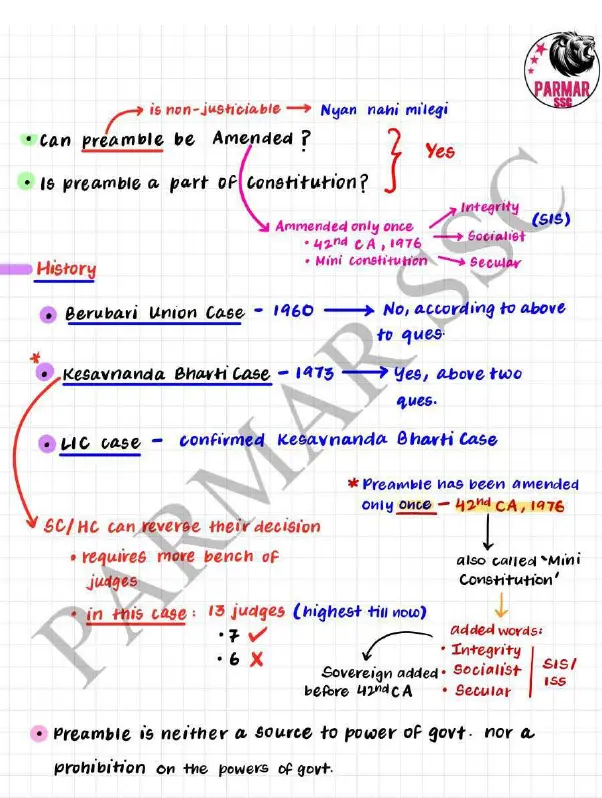 PARMAR
SSC
is non-justiciable → Nyan nahi milegi
• Can preamble be Amended?
Yes
• Is preamble a part of Constitution?
Ammended only once
• 42nd CA, 1976
• Mini constitution
→ Integrity
→ Socialist
→ Secular
(SIS)
History
• Berubari Union Case - 1960 → No, according to above
to ques.
* • Kesavnanda Bharti Case - 1973 → Yes, above two
ques.
• LIC case - confirmed Kesavnanda Bharti Case
* Preamble has been amended
only once - 42nd CA, 1976
SC/HC can reverse their decision
• requires more bench of
judges
• in this case: 13 judges (highest till now)
• 7 ✓
• 6 X
also called 'Mini
Constitution'
added words:
• Integrity
• Socialist
• Secular
SIS/
ISS
Sovereign added
before 42nd CA
• Preamble is neither a source to power of govt. nor a
prohibition on the powers of govt.
PARMAR SSC